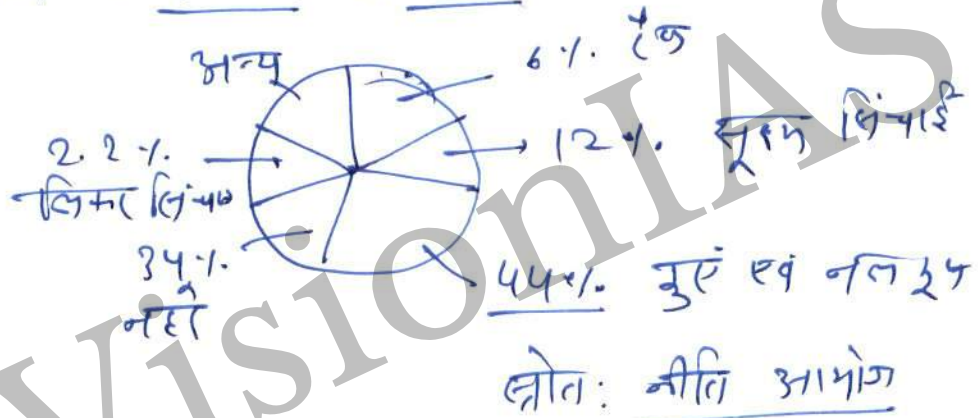 अन्य
6 %. टैंक
2.2 %.
12 %. सूक्ष्म सिंचाई
34 %.
नहरें
44 %. कुएं एवं नलकूप
स्रोत: नीति आयोग
VisionIAS